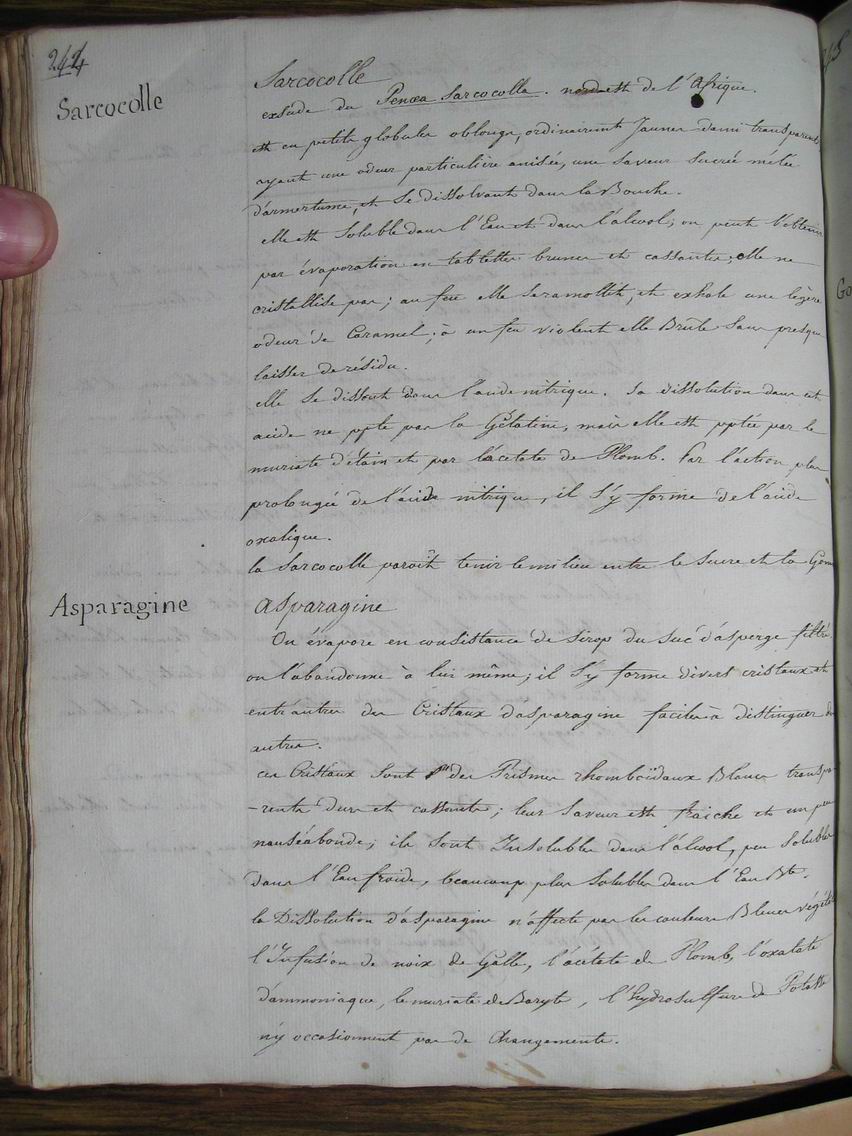 244
Sarcocolle
Sarcocolle
exsude du Penœa Sarcocolla. nord est de l'Afrique.
est en petits globules oblongs, ordinairement Jaunes demi transparents,
ayant une odeur particulière anisée, une saveur sucrée melée
d'amertume, et se dissolvant dans la Bouche.
elle est soluble dans l'Eau et dans l'alcool; on peut l'obtenir
par évaporation en tablettes brunes et cassantes; elle ne
cristallise pas; au feu elle se ramollit, et exhale une légère
odeur de Caramel; à un feu violent elle Brûle sans presque
laisser de résidu.
elle se dissout dans l'acide nitrique. sa dissolution dans cet
acide ne ppte pas la Gélatine, mais elle est pptée par le
muriate d'étain et par l'acétate de Plomb. Par l'action plus
prolongée de l'acide nitrique, il s'y forme de l'acide
oxalique.
la Sarcocolle paroît tenir le milieu entre le Sucre et la Gom
Asparagine
Asparagine
On évapore en consistance de sirop du suc d'asperge filtré,
on l'abandonne à lui même; il s'y forme divers cristaux et
entr'autres des Cristaux d'asparagine faciles à distinguer des
autres.
ces Cristaux sont des Prismes rhomboïdaux Blancs transpa-
-rents durs et cassants; leur saveur est fraiche et un peu
nauséabonde; ils sont Insolubles dans l'alcool, peu solubles
dans l'Eau froide, beaucoup plus solubles dans l'Eau Bte.
la Dissolution d'asparagine n'affecte pas les couleurs Bleues végétales
l'Infusion de noix de Galle, l'acétate de Plomb, l'oxalate
d'ammoniaque, le muriate de Baryte, l'hydrosulfure de Potasse
n'y occasionnent pas de Changements.